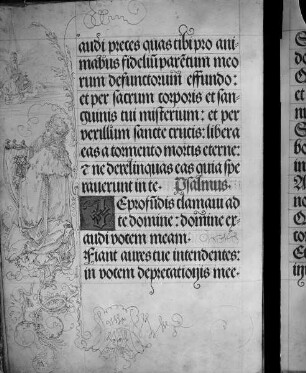 audi preces quas tibi pro ani-
mabus fidelium parentum meo
rum defunctorum effundo:
et per sacrum corporis et san-
guinis tui misterium: et per
vexillum sancte crucis: libera
eas a tormento mortis eterne:
et ne derelinquas eas quia spe
raverunt in te. Psalmus.
De profundis clamavi ad
te domine: domine ex-
audi vocem meam.
Fiant aures tue intendentes:
in vocem deprecationis mee.